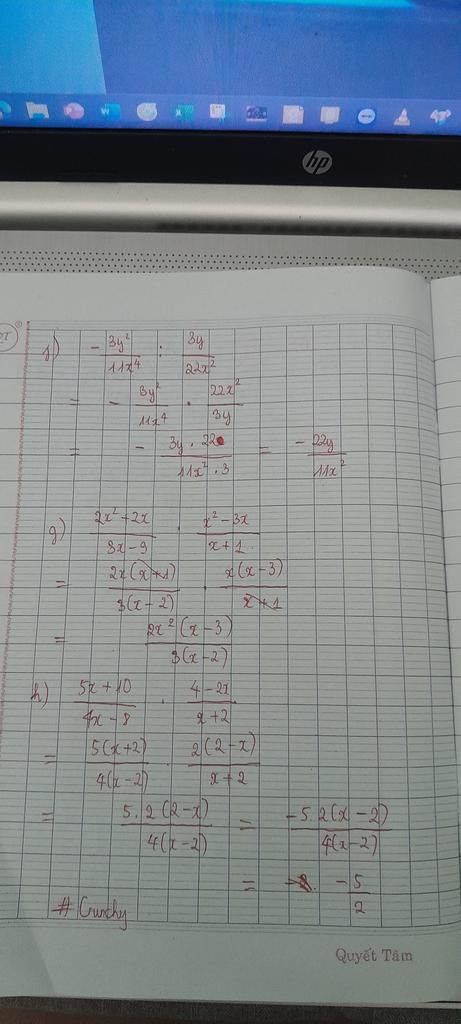 hp
f) - 3y²/11x⁴ : 3y/22x²
= - 3y²/11x⁴ . 22x²/3y
= - 3y . 22/11x² . 3 = - 22y/11x²
g) 2x² + 2x/3x - 9 . x² - 3x/x + 1
= 2x(x + 1)/3(x - 2) . x(x - 3)/x + 1
= 2x² (x - 3)/3(x - 2)
h) 5x + 10/4x - 8 . 4 - 2x/x + 2
= 5(x + 2)/4(x - 2) . 2(2 - x)/x + 2
= 5 . 2 (2 - x)/4(x - 2) = -5 . 2(x - 2)/4(x - 2)
= - 5/2
# Crunchy
Quyết Tâm